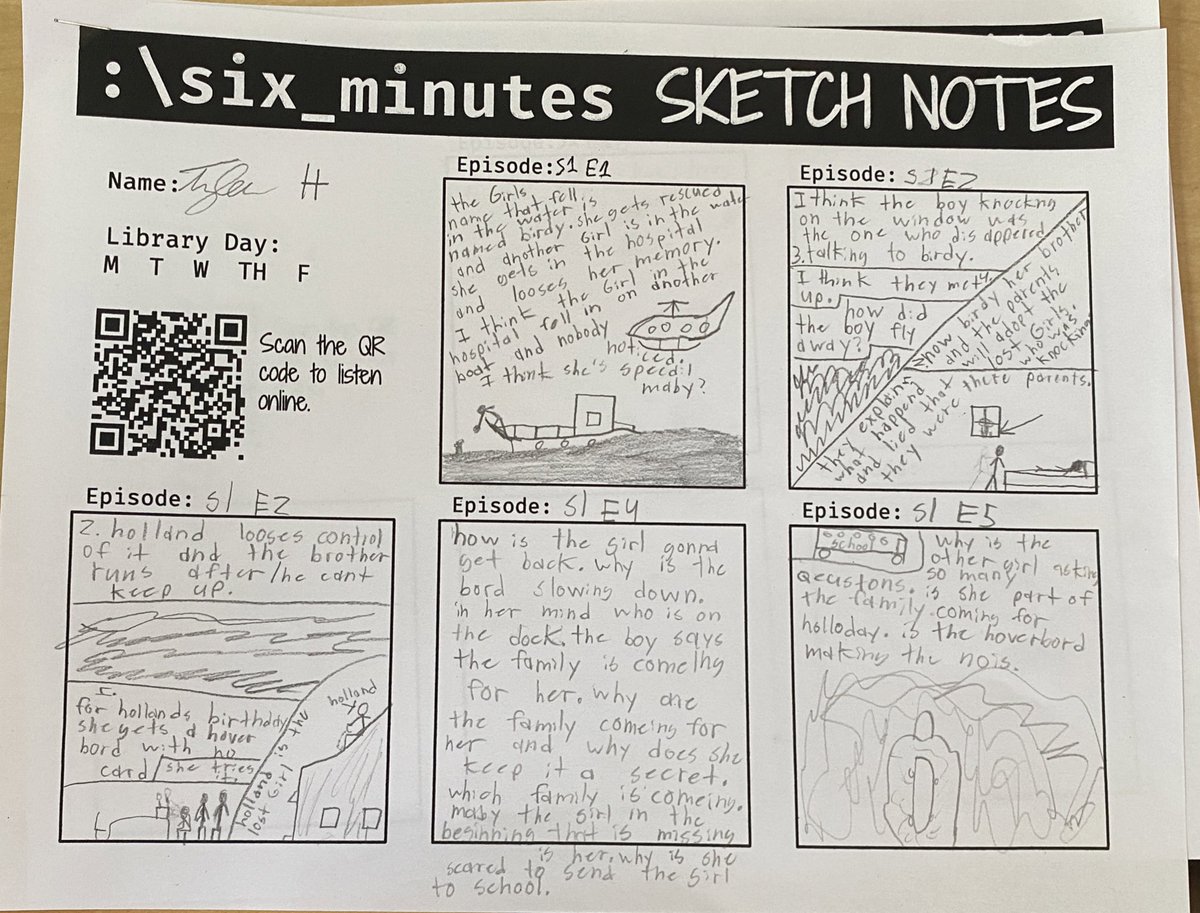 :\six_minutes SKETCH NOTES
Name: Tyler H
Library Day:
M T W TH F
Scan the QR
code to listen
online.
Episode: S1 E1
the Girls
name that fell
in the water is
named birdy. she gets rescued
and another Girl is in the water
she gets in the hospital
and looses her memory.
I think the Girl in the
hospital fell in on another
boat and nobody
noticed.
I think she's
maby?
Episode: S1 E2
I think the boy knockng
on the window was
the one who dis appered
3. talking to birdy.
I think they met
up.
how did
the boy fly
away?
4.
now birdy her brother
and the parents
will adopt the
lost Girls.
who was
knocking
they explain
what happend
and lied that
they were there parents.
Episode: S1 E2
2. holland looses control
of it and the brother
runs after/he cant
keep up.
1.
for hollands birthday
she gets a hover
bord with no
card
she tries
it.
holland is the
lost Girl
holland
Episode: S1 E4
how is the girl gonna
get back. why is the
bord slowing down.
in her mind who is on
the dock. the boy says
the family is comeing
for her. why are
the family comeing for
her and why does she
keep it a secret.
which family is comeing.
maby the girl in the
beginning that is missing
is her. why is she
scared to send the girl
to school.
Episode: S1 E5
school
why is the
other girl asking
so many
qeustons. is she part of
the family coming for
holloday. is the hoverbord
making the nois.